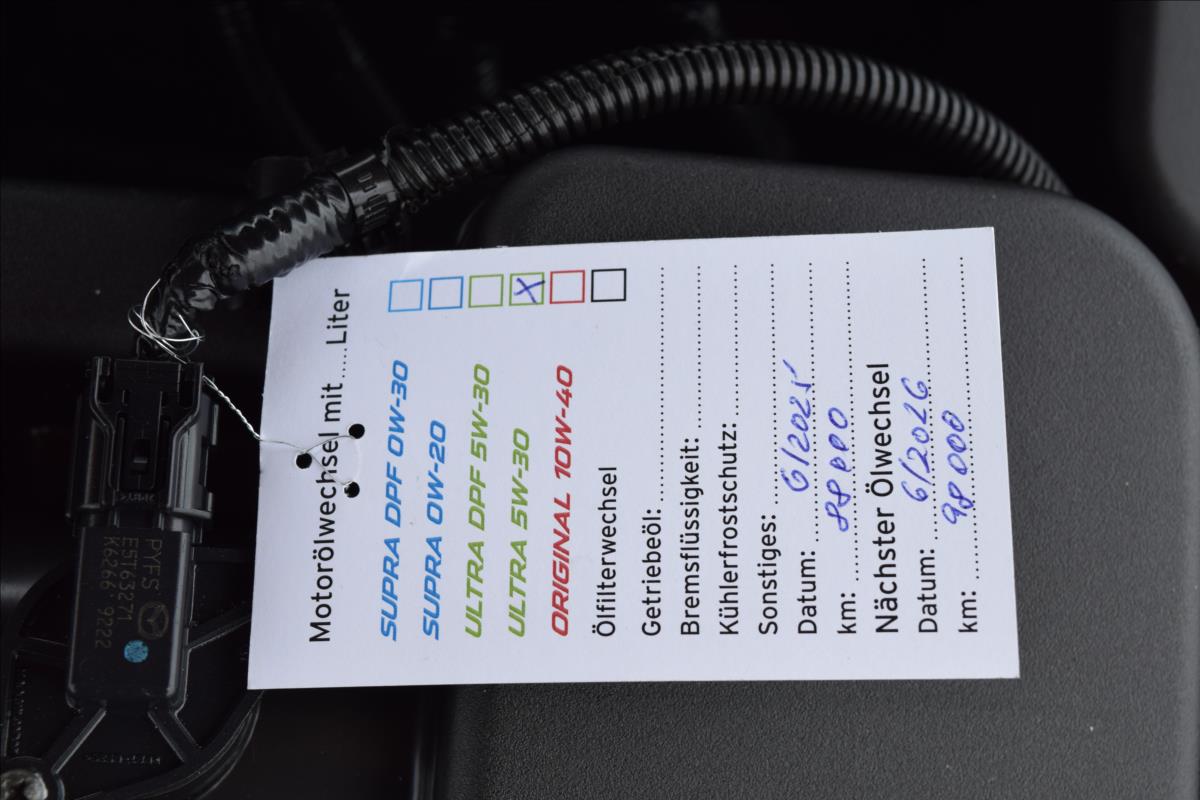 Motorölwechsel mit ..... Liter
SUPRA DPF 0W-30
SUPRA 0W-20
ULTRA DPF 5W-30
ULTRA 5W-30 X
ORIGINAL 10W-40
Ölfilterwechsel
Getriebeöl:
Bremsflüssigkeit:
Kühlerfrostschutz:
Sonstiges:
Datum: 6/2025
km: 88 000
Nächster Ölwechsel
Datum: 6/2026
km: 98 000
PYFS
E5T63271
K6266 9222